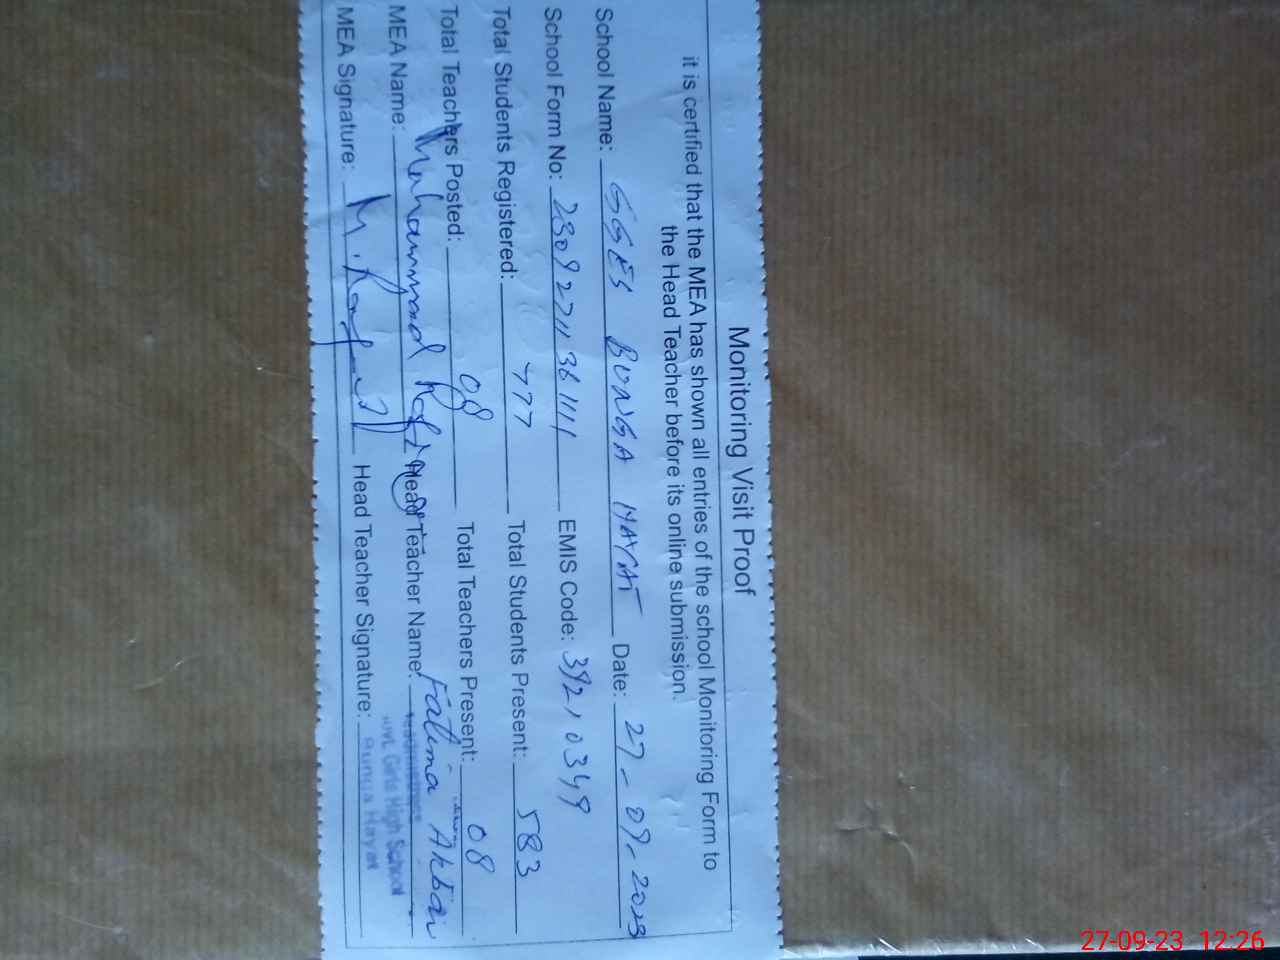 Monitoring Visit Proof
it is certified that the MEA has shown all entries of the school Monitoring Form to
the Head Teacher before its online submission.
School Name: GGES BUNGA HAYAT Date: 27-09-2023
School Form No: 2309271136111 EMIS Code: 39210349
Total Students Registered: 777 Total Students Present: 583
Total Teachers Posted: 08 Total Teachers Present: 08
MEA Name: Muhammad Head Teacher Name: Fatima Akbar
MEA Signature: Head Teacher Signature:
Girls High School
Bunga Hayat
27-09-23 12:26